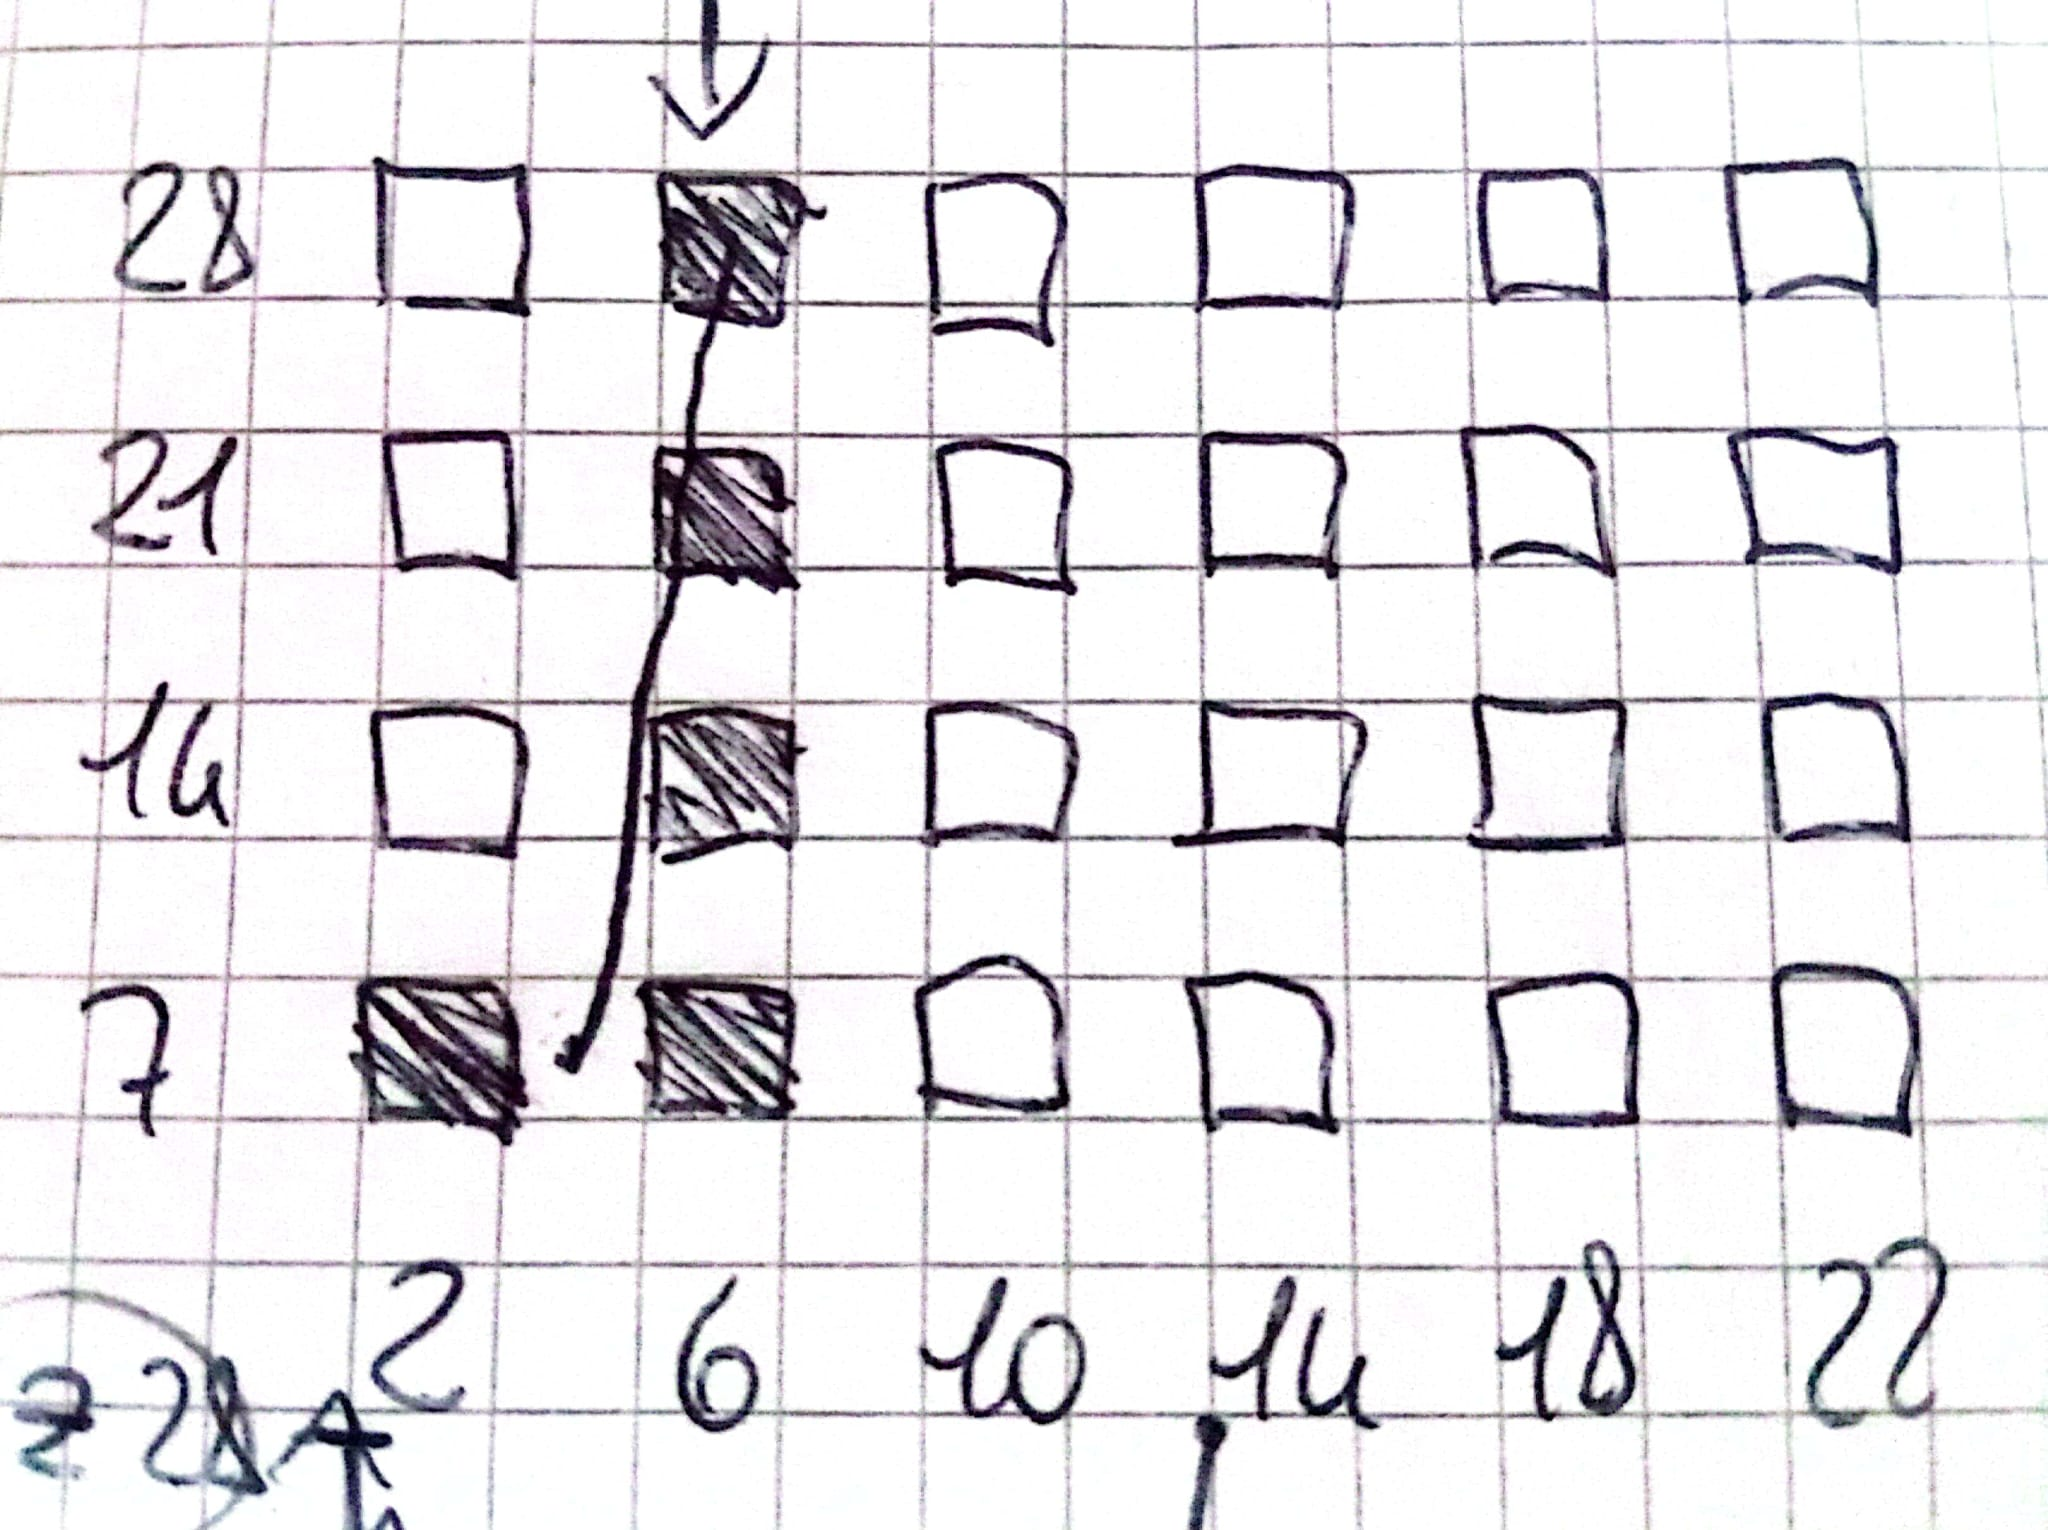 28
21
14
7
2 6 10 14 18 22
28